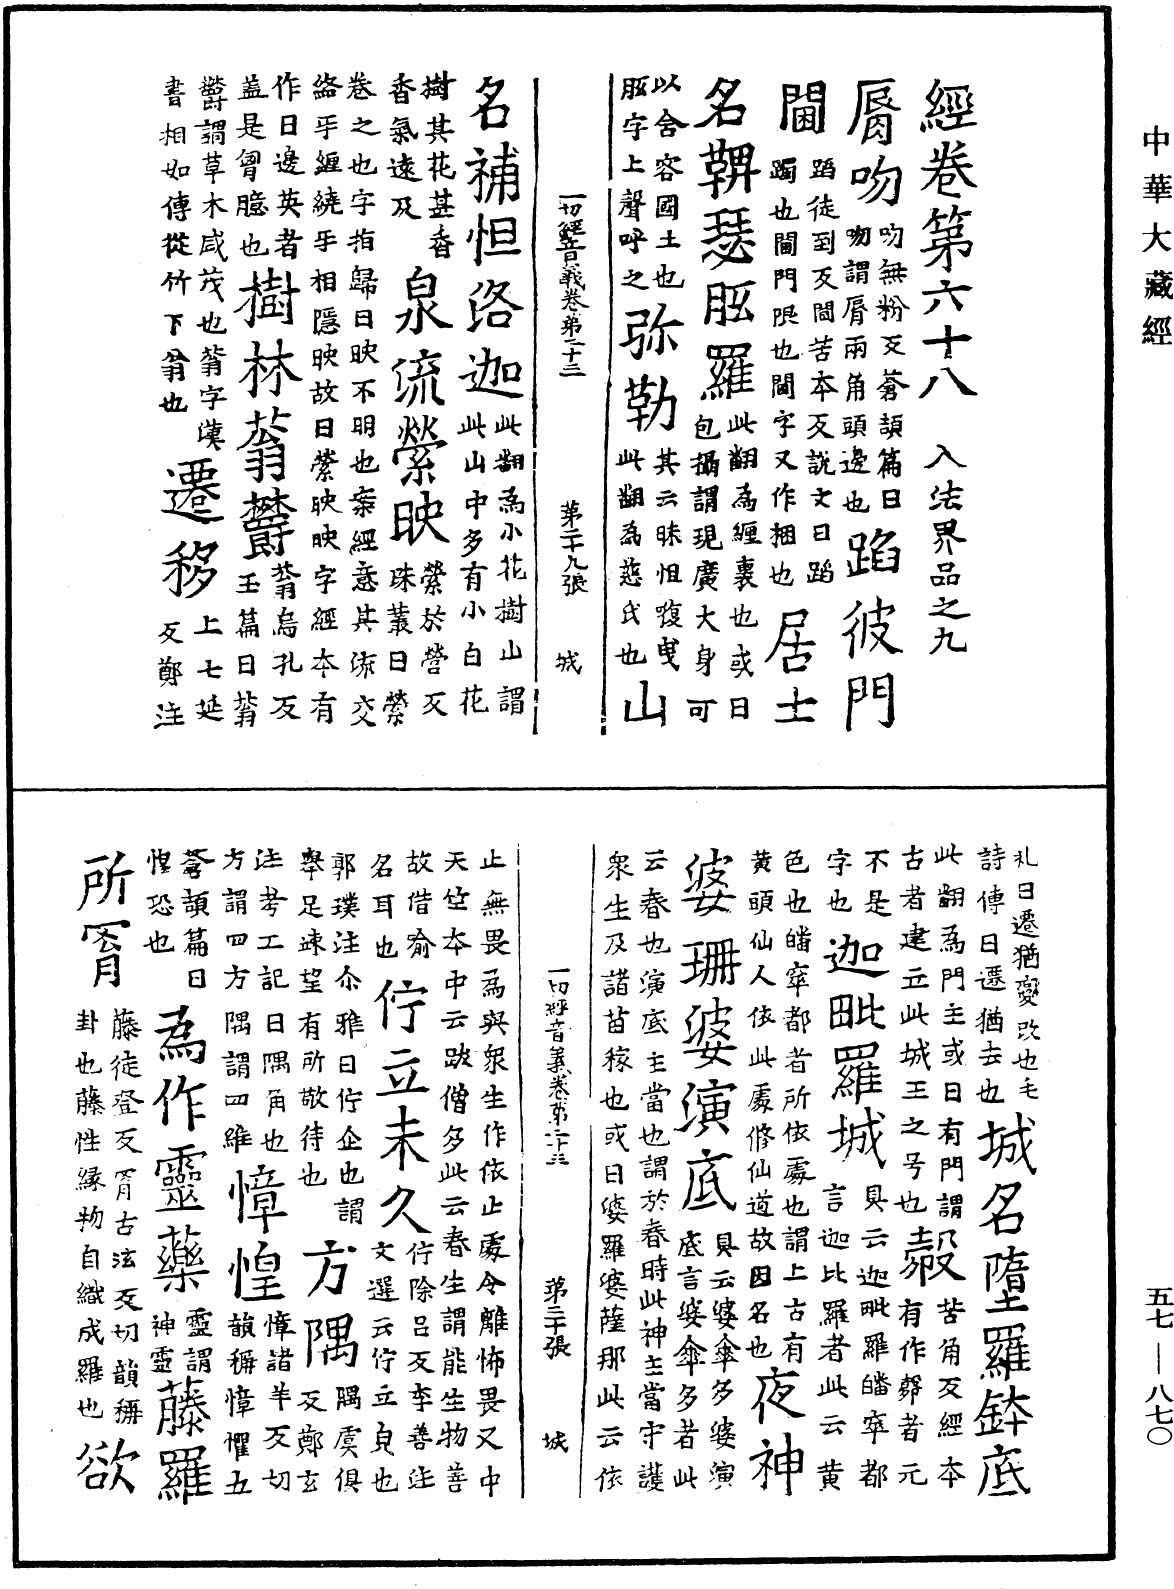 中華大藏經
經卷第六十八　入法界品之九
脣吻 吻無粉反蒼頡篇曰吻謂脣兩角頭邊也 蹈彼門
閫 蹈徒到反閫苦本反說文曰蹈躅也閫門限也閫字又作梱也 居士
名鞞瑟胝羅 此翻為纏裹也或曰包攝謂現廣大身可
以舍容國土也胝字上聲呼之 弥勒 其云昧怛㘁曳此翻為慈氏也 山
一切經音義卷第二十三　第二十九張　城
名補怛洛迦 此翻為小花樹山謂此山中多有小白花
樹其花甚香香氣遠及 泉流縈映 縈於營反珠叢曰縈
卷之也字指歸曰映不明也案經意其流交
絡乎纏繞乎相隱映故曰縈映映字經本有
作日邊英者蓋是胷臆也 樹林蓊欝 蓊烏孔反玉篇曰蓊
欝謂草木咸茂也蓊字漢書相如傳從竹下翁也 遷移 上七延反鄭注
礼曰遷猶變改也毛詩傳曰遷猶去也 城名墮羅鉢底
此翻為門主或曰有門謂古者建立此城王之号也 㲉 苦角反經本有作㲉者元
不是字也 迦毗羅城 具云迦毗羅皤窣都言迦比羅者此云黃
色也皤窣都者所依處也謂上古有黃頭仙人依此處修仙道故因名也 夜神
婆珊婆演底 具云婆傘多婆演底言婆傘多者此
云春也演底主當也謂於春時此神主當守護
衆生及諸苗稼也或曰婆羅婆薩那此云依
一切經音義卷第二十三　第三十張　城
止無畏為與衆生作依止處令離怖畏又中
天竺本中云跛僧多此云春生謂能生物善
故借喻名耳也 佇立未久 佇除呂反李善注文選云佇立皃也
郭璞注尒雅曰佇企也謂舉足竦望有所敬待也 方隅 隅虞俱反鄭玄
注考工記曰隅角也方謂四方隅謂四維 慞惶 慞諸羊反切韻稱慞懼五
蒼頡篇曰惶恐也 為作靈藥 靈謂神靈 藤羅
所罥 藤徒登反罥古泫反切韻稱罥卦也藤性緣物自織成羅也 欲
五七—八七〇